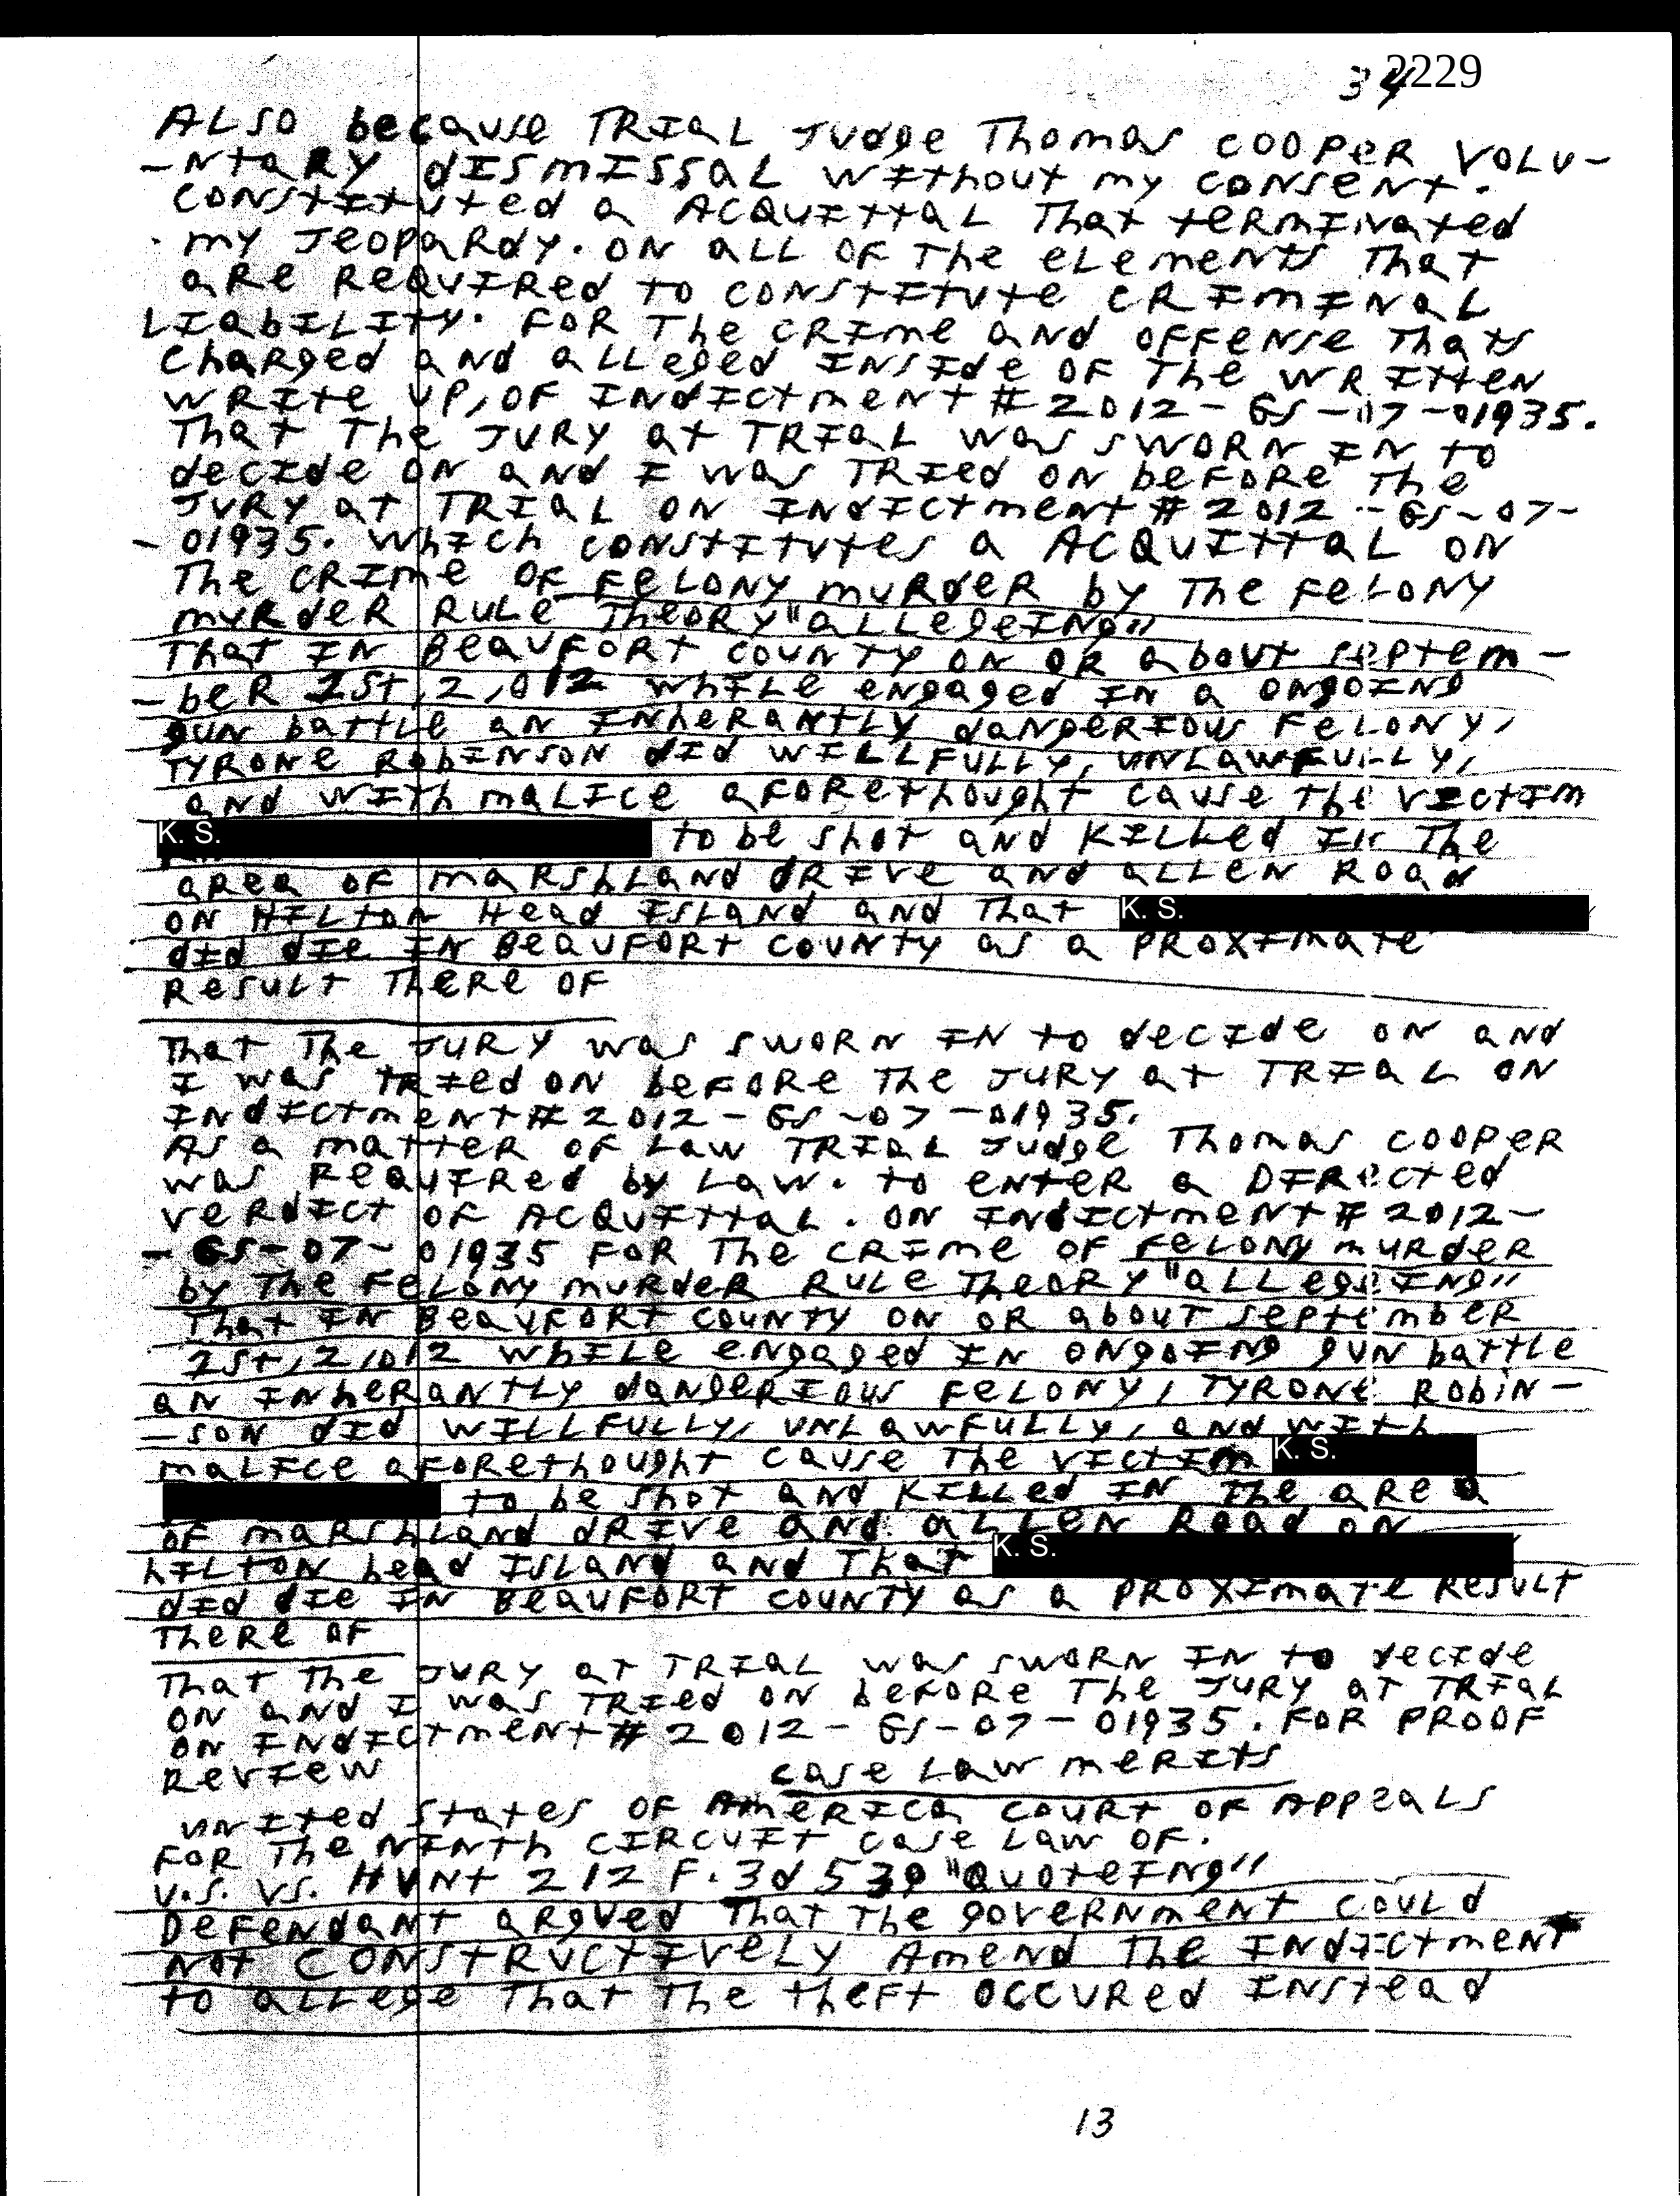 34 2229
ALSO because TRIAL Judge Thomas COOPER VOLU-
-NtaRY dISMISSAL WIthout my CONSENt.
CONSTItuted a ACQUITTAL That teRMINated
my JeopaRdy. ON aLL OF The eLements That
aRe RequIRed to CONSTITUte CRIMINAL
LIabILITY. FOR The CRIme and OFFENSE Thats
ChaRged and aLLeged INSIde OF The WRItten
WRIte UP, OF INdIctment # 2012-GS-07-01935.
That The JURY at TRIAL was SWORN IN to
decIde ON and I was TRIed ON beFORE The
JURY at TRIAL ON INdIctment # 2012-GS-07-
-01935. WhIch CONSTITUtes a ACQUITTAL ON
The CRIme OF FeLONY muRdeR by The FeLONY
muRdeR RULe TheORY "aLLegeINg"
That IN BeauFORt COUNTY ON OR about Septem-
-beR 21St, 2,012 whILe engaged IN a ONgOINg
gun battle an INheRaNtLy dangeRIous FeLONY,
TYRONe RobINSON dId WILLFULLY, UNLAWFULLY,
and WIth maLIce aFORethought cause The vIctIm
K. S. to be Shot and KILLed IN The
aRea OF maRShLand dRIve and aLLeN Road
ON HILTON Head ISLand and That K. S.
dId dIe IN BeauFORt COUNTY as a PROXImate
ReSULt TheRe OF
That The JURY was SWORN IN to decIde ON and
I was TRIed ON beFORE The JURY at TRIAL ON
INdIctment # 2012-GS-07-01935.
As a matteR OF Law TRIAL Judge Thomas COOPER
was RequIRed by Law. to enteR a DIRected
veRdIct OF ACQUITTAL. ON INdIctment # 2012-
-GS-07-01935 FOR The CRIme OF FeLONY muRdeR
by The FeLONY muRdeR RULe TheORY "aLLegeINg"
That IN BeauFORt COUNTY ON OR about SeptembeR
21St, 2,012 whILe engaged IN ONgOINg gun battle
an INheRaNtLy dangeRIous FeLONY, TYRONe RobIN-
-SON dId WILLFULLY, UNLAWFULLY, and WIth
maLIce aFORethought cause The vIctIm K. S.
to be Shot and KILLed IN The aRea
OF maRShLand dRIve and aLLeN Road ON
hILTON head ISLand and That K. S.
dId dIe IN BeauFORt COUNTY as a PROXImate ReSULt
TheRe OF
That The JURY at TRIAL was SWORN IN to decIde
ON and I was TRIed ON beFORE The JURY at TRIAL
ON INdIctment # 2012-GS-07-01935. FOR PROOF
RevIew
case Law meRIts
UNIted States OF AmeRIca COURt OF APPeaLS
FOR The NINth CIRCUIt case Law OF.
U.S. VS. HUNt 212 F.3d 539 "QuoteINg"
DeFeNdaNt aRgued That The goveRNment COULd
not CONStRUCtIveLy Amend The INdIctment
to aLLege That The theFt OCCURed INStead
13